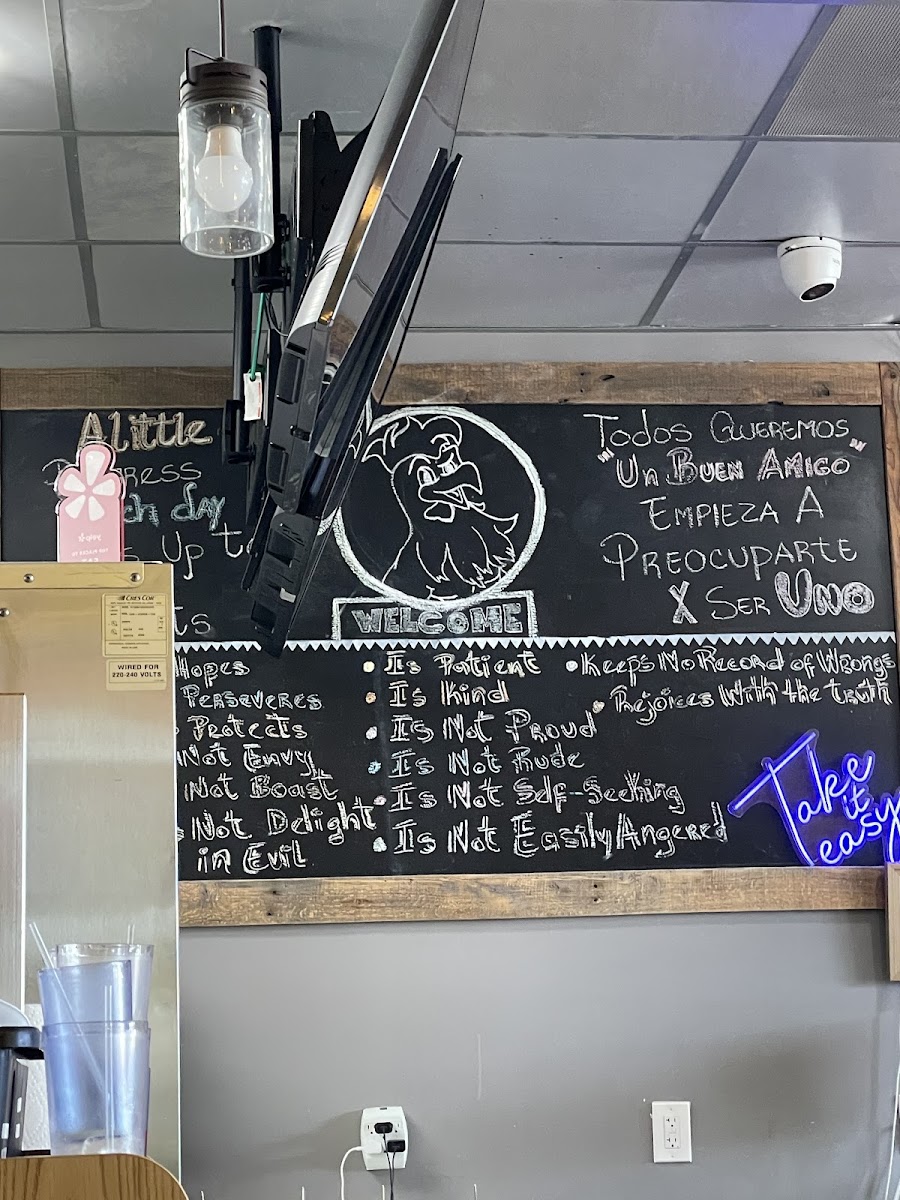 A little
ress
ch day
s Up to
ts
WELCOME
Todos Queremos
"Un Buen Amigo"
Empieza A
Preocuparte
X Ser Uno
Hopes
Perseveres
Protects
Not Envy
Not Boast
Not Delight
in Evil
Is Patient
Is Kind
Is Not Proud
Is Not Rude
Is Not Self-Seeking
Is Not Easily Angered
Keeps No Record of Wrongs
Rejoices With the truth
Take
it
easy
CRES COR
WIRED FOR
220-240 VOLTS